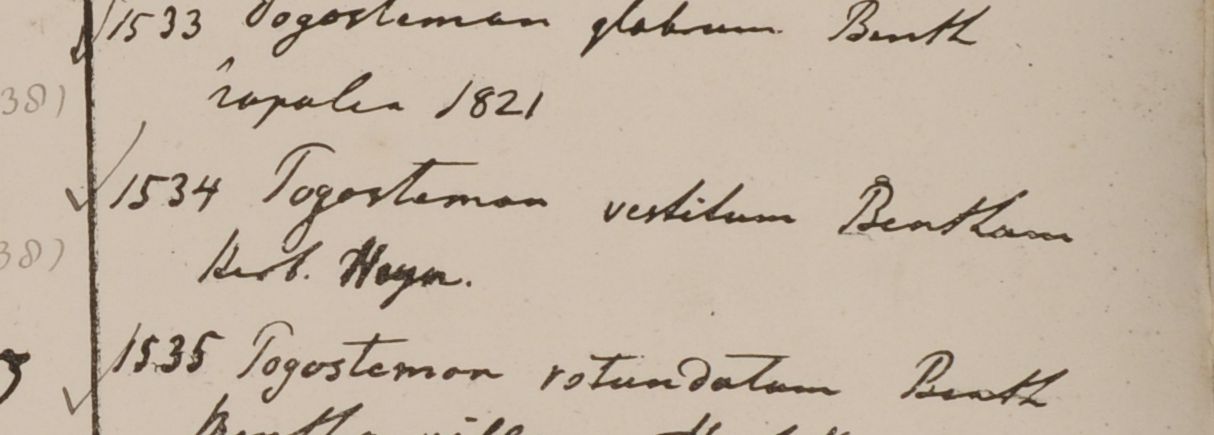 1533 Pogostemon glabrum Benth
Napalia 1821
38)
1534 Pogostemon vestitum Bentham
38)
Herb. Heyn.
1535 Pogostemon rotundatum Benth